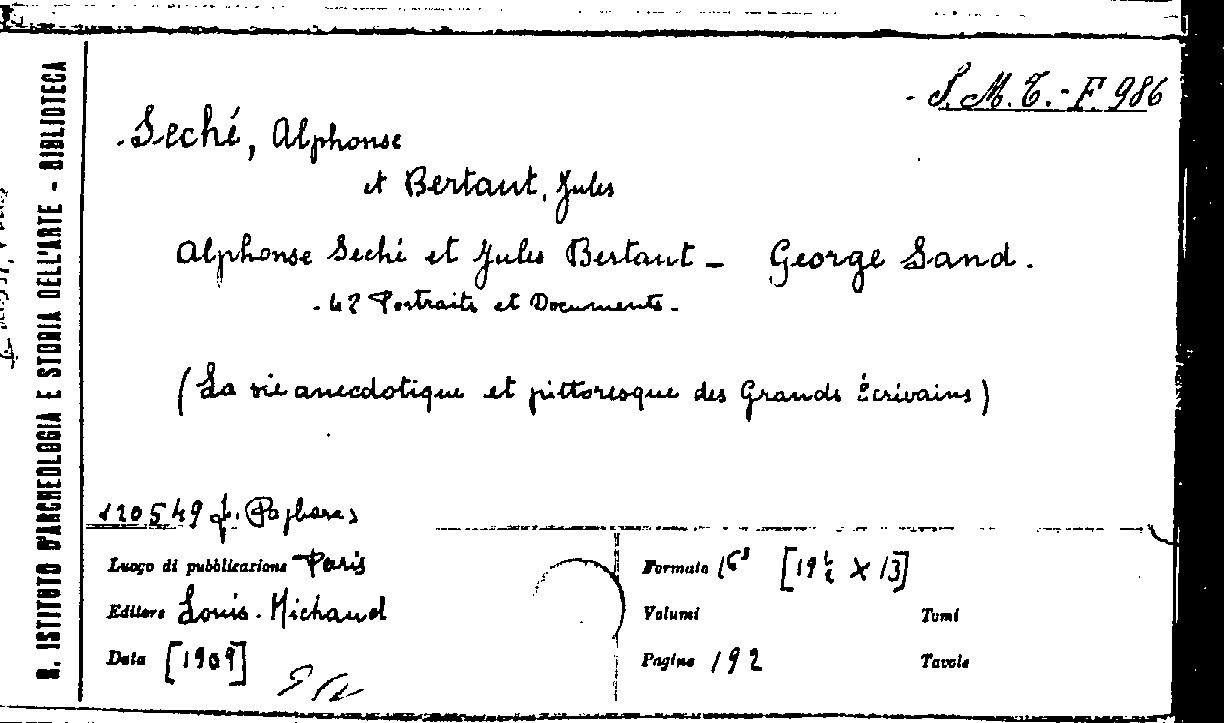 R. ISTITUTO D'ARCHEOLOGIA E STORIA DELL'ARTE - BIBLIOTECA
S.M.T. - F. 986
Seché, Alphonse
et Bertaut, Jules
Alphonse Seché et Jules Bertaut - George Sand.
- 42 Portraits et Documents -
(La vie anecdotique et pittoresque des Grands Écrivains)
120549 f.
Luogo di pubblicazione Paris
Editore Louis-Michaud
Data [1909]
Formato 16° [19 ½ x 13]
Volumi Tomi
Pagine 192 Tavole